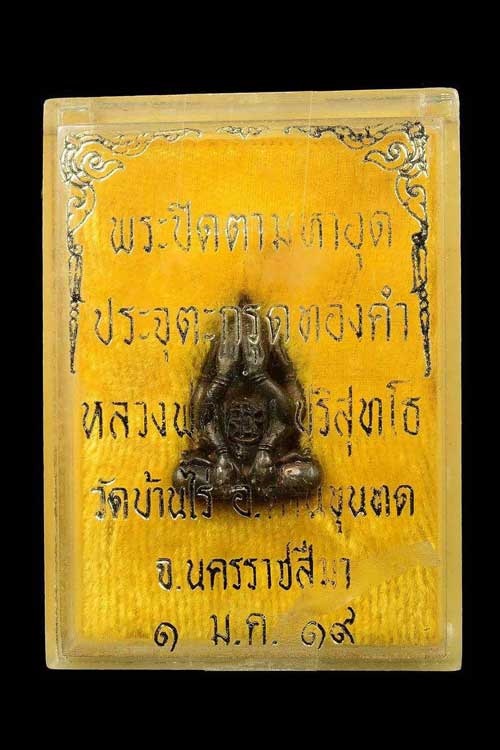 พระปิดตามหาอุด
ประจุตะกรุดทองคำ
หลวงพ ปริสุทโธ
วัดบ้านไร่ อ. ขุนทด
จ.นครราชสีมา
๑ ม.ค. ๑๙